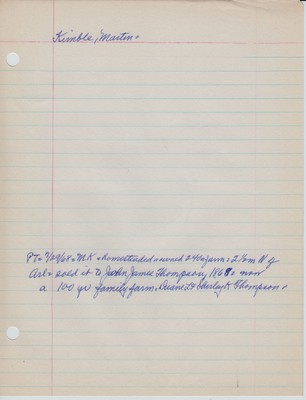 Kimble, Martin.
PT. 7/29/68. M K. homesteaded & owned 240a farm, 2½ m N of
Arl. & sold it to John James Thompson, 1868. now
a 100 yr family farm. Duane L & Shirley K Thompson.